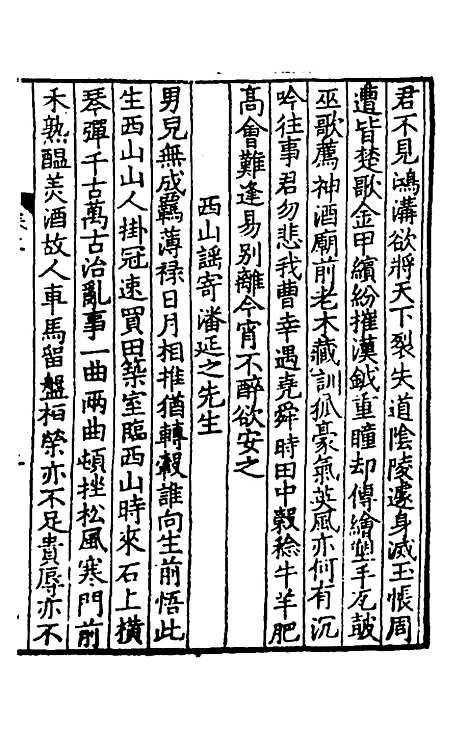 君不見鴻溝欲將天下裂失道陰陵遽身滅玉帳周
遭皆楚歌金甲繽紛摧漢鉞重瞳却傳繪塑手瓦皷
巫歌薦神酒廟前老木藏訓狐豪氣英風亦何有沉
吟往事君勿悲我曹幸遇堯舜時田中穀稌牛羊肥
高會難逢易别離今宵不醉欲安之
西山謡寄潘延之先生
男兒無成羈薄禄日月相推猶轉轂誰向生前悟此
生西山山人掛冠速買田築室臨西山時來石上横
琴彈千古萬古治亂事一曲兩曲頓挫松風寒門前
禾熟醖美酒故人車馬留盤桓榮亦不足貴辱亦不